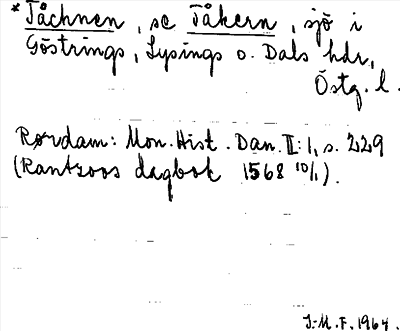 * Tåchnen, se Tåkern, sjö i
Göstrings, Lysings o. Dals hdr,
Östg. l.
Rørdam: Mon. Hist. Dan. II:1, s. 229
(Rantzoos dagbok 1568 10/1).
I.-M. F. 1964.